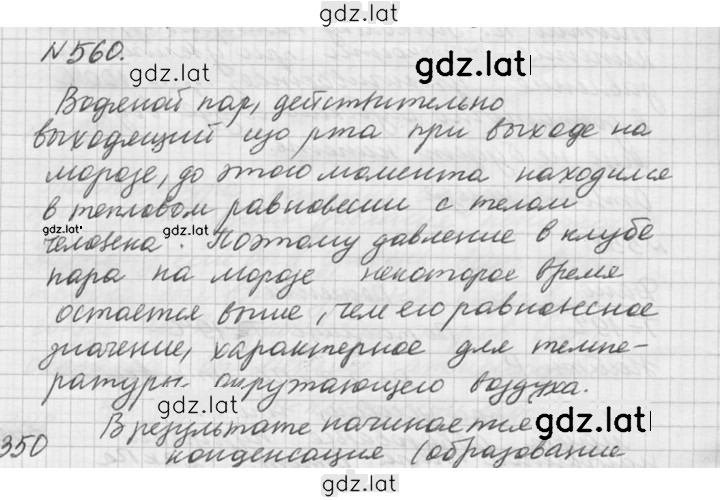 gdz.lat
№560.
gdz.lat
gdz.lat
Водяной пар, действительно
выходящий изо рта при выходе на
морозе, до этого момента находился
в тепловом равновесии с телом
gdz.lat
gdz.lat
человека. Поэтому давление в клубе
пара на морозе некоторое время
остается выше, чем его равновесное
значение, характерное для темпе-
ратуры окружающего воздуха.
gdz.lat
gdz.lat
350
В результате начинается
конденсация (образование
gdz.lat
gdz.lat